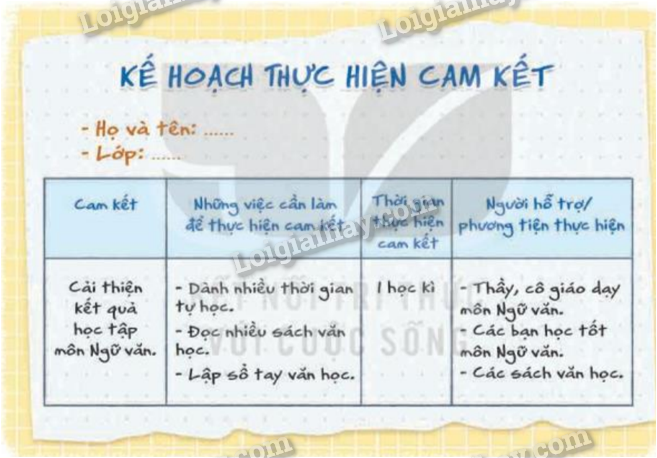 Loigiaihay.com
KẾ HOẠCH THỰC HIỆN CAM KẾT
- Họ và tên: ......
- Lớp: ......
Cam kết
Những việc cần làm
để thực hiện cam kết
Thời gian
thực hiện
cam kết
Người hỗ trợ/
phương tiện thực hiện
Loigiaihay.com
Cải thiện
kết quả
học tập
môn Ngữ văn.
- Dành nhiều thời gian
tự học.
- Đọc nhiều sách văn
học.
- Lập sổ tay văn học.
1 học kì
- Thầy, cô giáo dạy
môn Ngữ văn.
- Các bạn học tốt
môn Ngữ văn.
- Các sách văn học.
KẾT NỐI TRI THỨC
VỚI CUỘC SỐNG